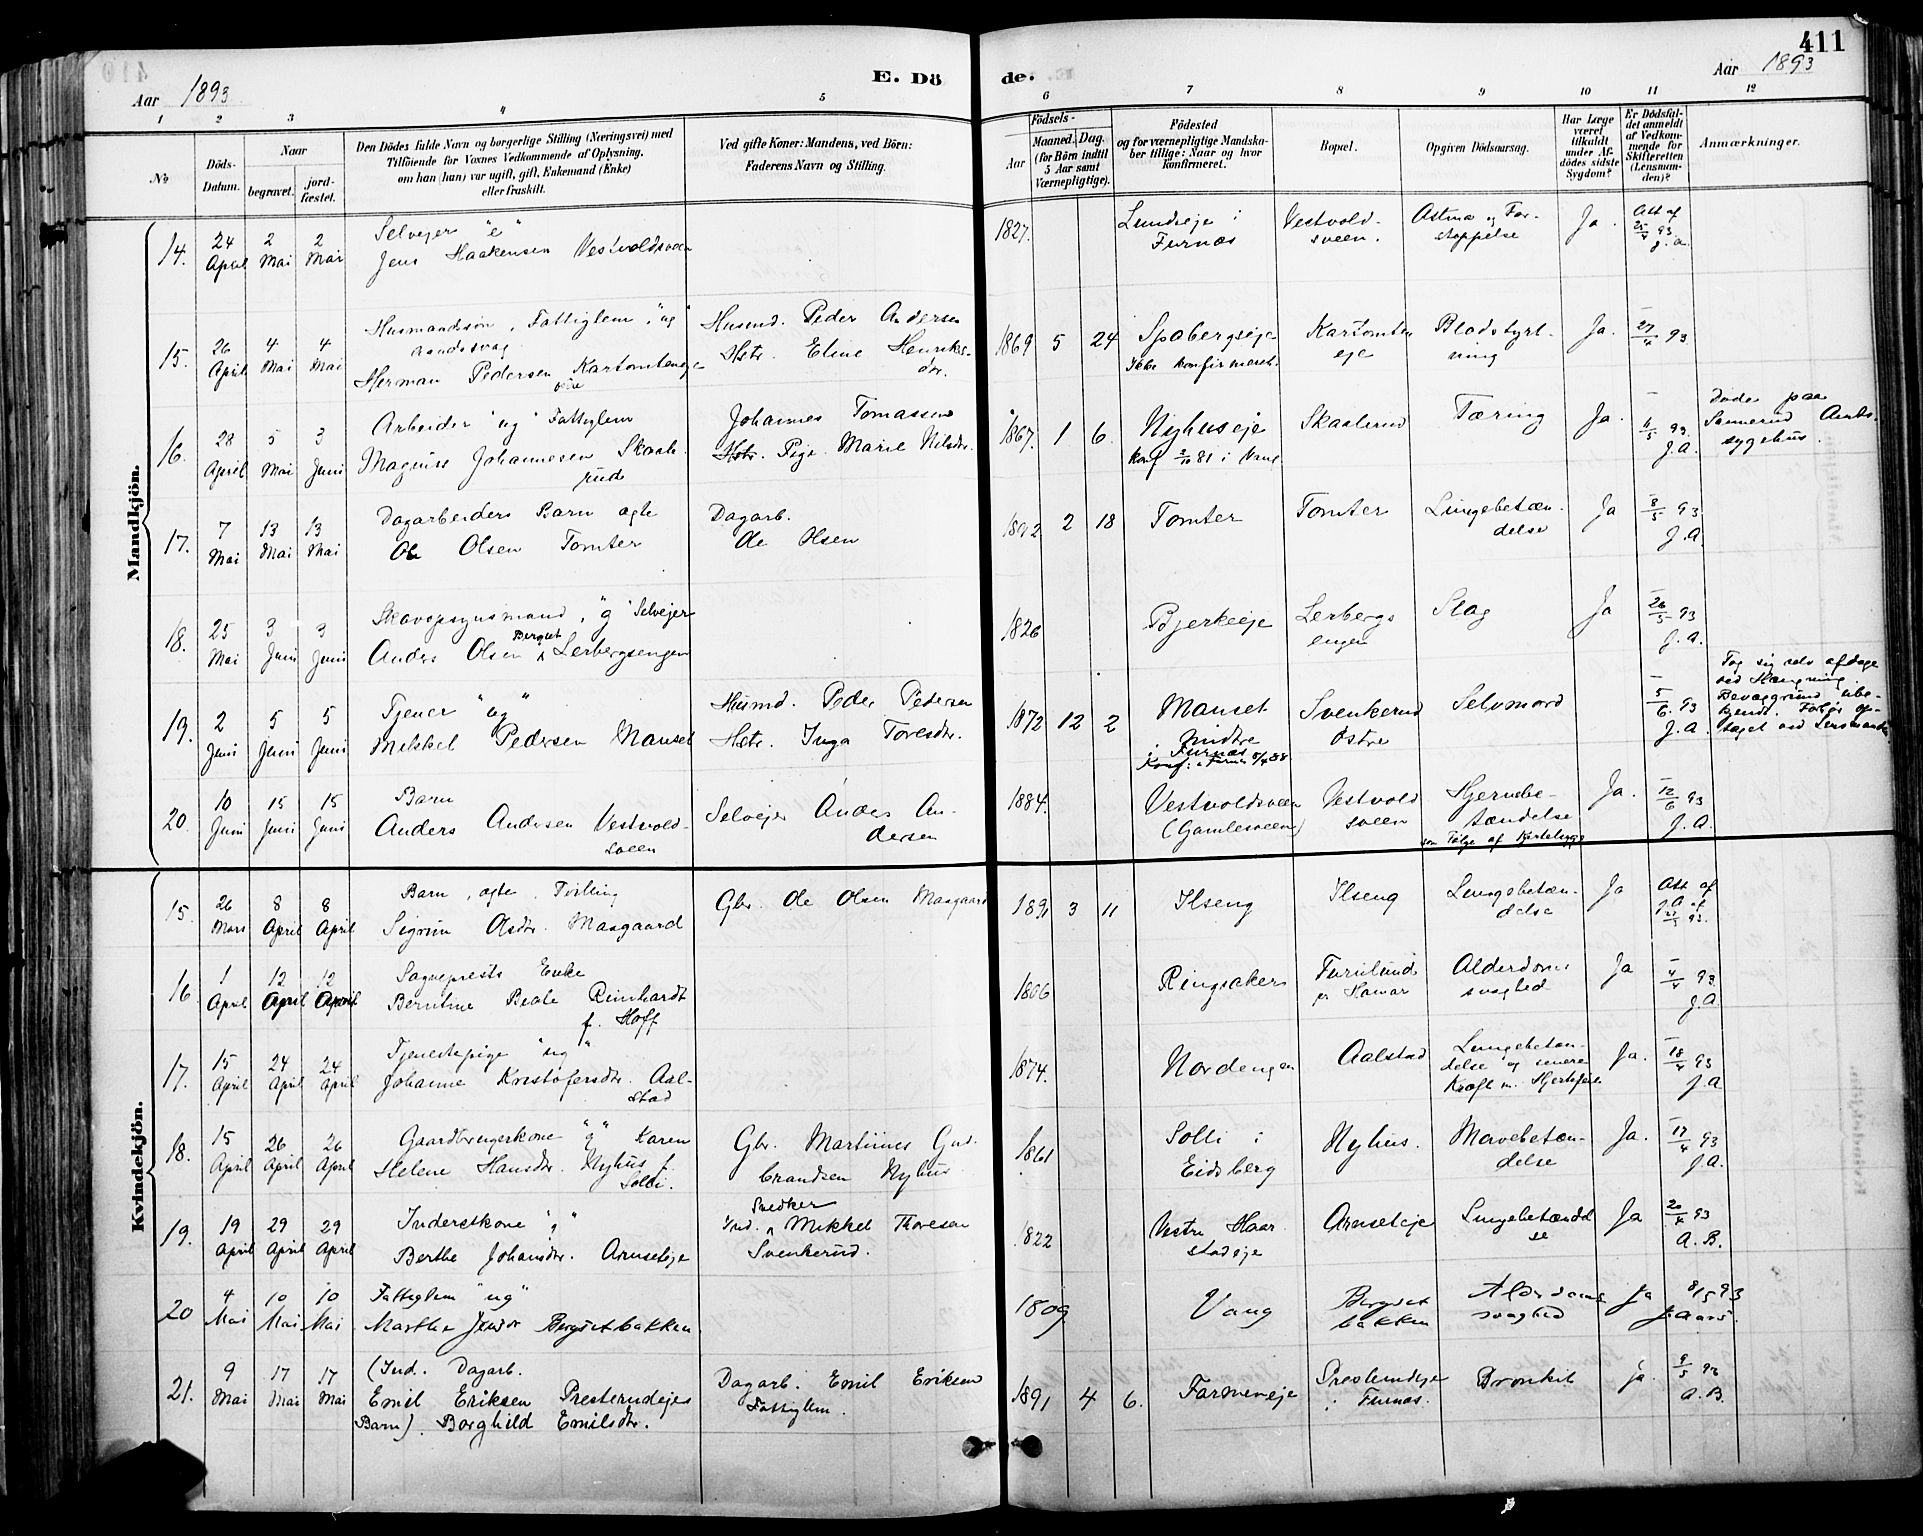 411
E. Döde.
Aar 1893
Aar 1893
1 2 3 4 5 6 7 8 9 10 11 12
No
Döds-Datum.
Naar
begravet.
jord-fæstet.
Den Dödes fulde Navn og borgerlige Stilling (Næringsvei) med
Tilföiende for Voxnes Vedkommende af Oplysning,
om han (hun) var ugift, gift, Enkemand (Enke)
eller fraskilt.
Ved gifte Koner: Mandens, ved Börn:
Faderens Navn og Stilling.
Födsels-
Aar
Maaned. Dag.
(for Börn indtil
5 Aar samt
Værnepligtige).
Födested
og for værnepligtige Mandska-
ber tillige: Naar og hvor
konfirmeret.
Bopæl.
Opgiven Dödsaarsag.
Har Læge
været
tilkaldt
under Af-
dödes sidste
Sygdom?
Er Dödsfal-
det anmeldt
af Vedkom-
mende for
Skifteretten
(Lensman-
den)?
Anmærkninger.
Mandkjön.
14. 24 April 2 Mai 2 Mai
Selveier "e"
Jens Haakensen Vestvoldsveen
1827. Lundseje i Furnæs
Vestvold-sveen.
Astma og For-stoppelse
Ja. Att af 25/4 93 J. A.
15. 26 April 4 Mai 4 Mai
Husmandsøn, Fattiglem, "ug"
aandssvag
Herman Pedersen Kartomteneje
Husmd. Peder Andersen
Hstr. Eline Henriks-dtr.
1869 5 24 Spobergseje
Ikke konfirmeret.
Kartomten eje
Blodstyrt-ning
Ja. 27/4 93
16. 28 April 5 Mai 3 Juni
Arbeider "ug" Fattiglem
Magnus Johannesen Skaale-rud
Johannes Tomassen
Pige Marie Nilsdtr.
1867. 1 6. Nyhuseje
Konf 2/10 81 i Vang
Skaalerud
Tæring
Ja. 4/5 93. J. A.
Døde paa
Sannerud Amts-
sygehus.
17. 7 Mai 13 Mai 13 Mai
Dagarbeiders Barn ægte
Ole Olsen Tomter
Dagarb.
Ole Olsen
1892 2 18 Tomter
Tomter
Lungebetæn-delse
Ja 8/5 93 J. A.
18. 25 Mai 3 Juni 3 Juni
Skovopsynsmand, "g" Selvejer
Anders Olsen Berget Lerbergsengen
1826 Bjerkeeje
Lerbergs engen
Slag
Ja 26/5 93 J. A.
19. 2 Juni 5 Juni 5 Juni
Tjener "ug"
Mikkel Pedersen Manset
Husmd. Peder Pedersen
Hstr. Inga Toresdtr.
1872 12 2 Manset
Midtre
i Furnæs
Konf: i Furnæs 8/4 88
Svenkerud Østre
Selvmord
5/6 93 J. A.
Tog sig selv afdage
ved Hængning.
Bevæggrund ube-
kjendt. Forhør op-
taget ved Lensmanden
20. 10 Juni 15 Juni 15 Juni
Barn
Anders Andersen Vestvold-sveen
Selveier Anders An-dersen
1884. Vestvoldsveen
(Gamlesveen)
Vestvold sveen
Hjernebe-tændelse
som Følge af
Ja. 12/6 93 J. A.
Kvindekjön.
15. 26 Mars 8 April 8 April
Barn, ægte, Tvilling
Sigrun Olsdtr. Maagaard
Gbr. Ole Olsen Maagaard
1891 3 11 Ilseng
Ilseng
Lungebetæn-delse
Ja Att af J A af 27/3 93.
16 1 April 12 April 12 April
Sogneprests Enke
Berntine Beate Reinhardt
f. Hoff
1806 Ringsaker
Furulund pr Hamar
Alderdoms svaghed
Ja 4/4 93. J. A
17. 15 April 24 April 24 April
Tjenestepige "ug"
Johanne Kristofersdtr. Aal-stad
1874. Nordengen
Aalstad
Lungebetæn-
delse og senere
Kræft m. Hjertefeil
Ja. 18/4 93 J. A
18. 15 April 26 April 26 April
Gaardbrugerkone "g" Karen
Helene Hansdtr. Nyhus f.
Solbi.
Gbr. Martinius Gud-
brandsen Nyhus
1861 Solbi i
Eidsberg
Nyhus.
Marvebetæn-delse
Ja. 17/4 93 J. A.
19. 19 April 29 April 29 April
Inderstkone "g"
Berthe Johansdtr. Arnseteje
Snedker
Ind. Mikkel Thoresen
Svenkerud.
1822 Vestre Haar-
stadeje
Arnseteje
Lungebetændel se
Ja 20/4 93 A. B.
20 4 Mai 10 Mai 10 Mai
Fattiglem "ug"
Marthe Jensdr Bergsetbakken.
1809 Vang
Bergset bakken
Alderdoms svaghed
Ja 8/5 93 J. Aars.
21. 9 Mai 17 Mai 17 Mai
(Ind. Dagarb.
Emil Eriksen Presterudejes
Barn). Borghild Emilsdtr.
Dagarb. Emil Eriksen
Fattiglem.
1891 4 6. Farmeneje
Presterudeje i Furnæs.
Bronkit
ja. 9/5 93 A. B.